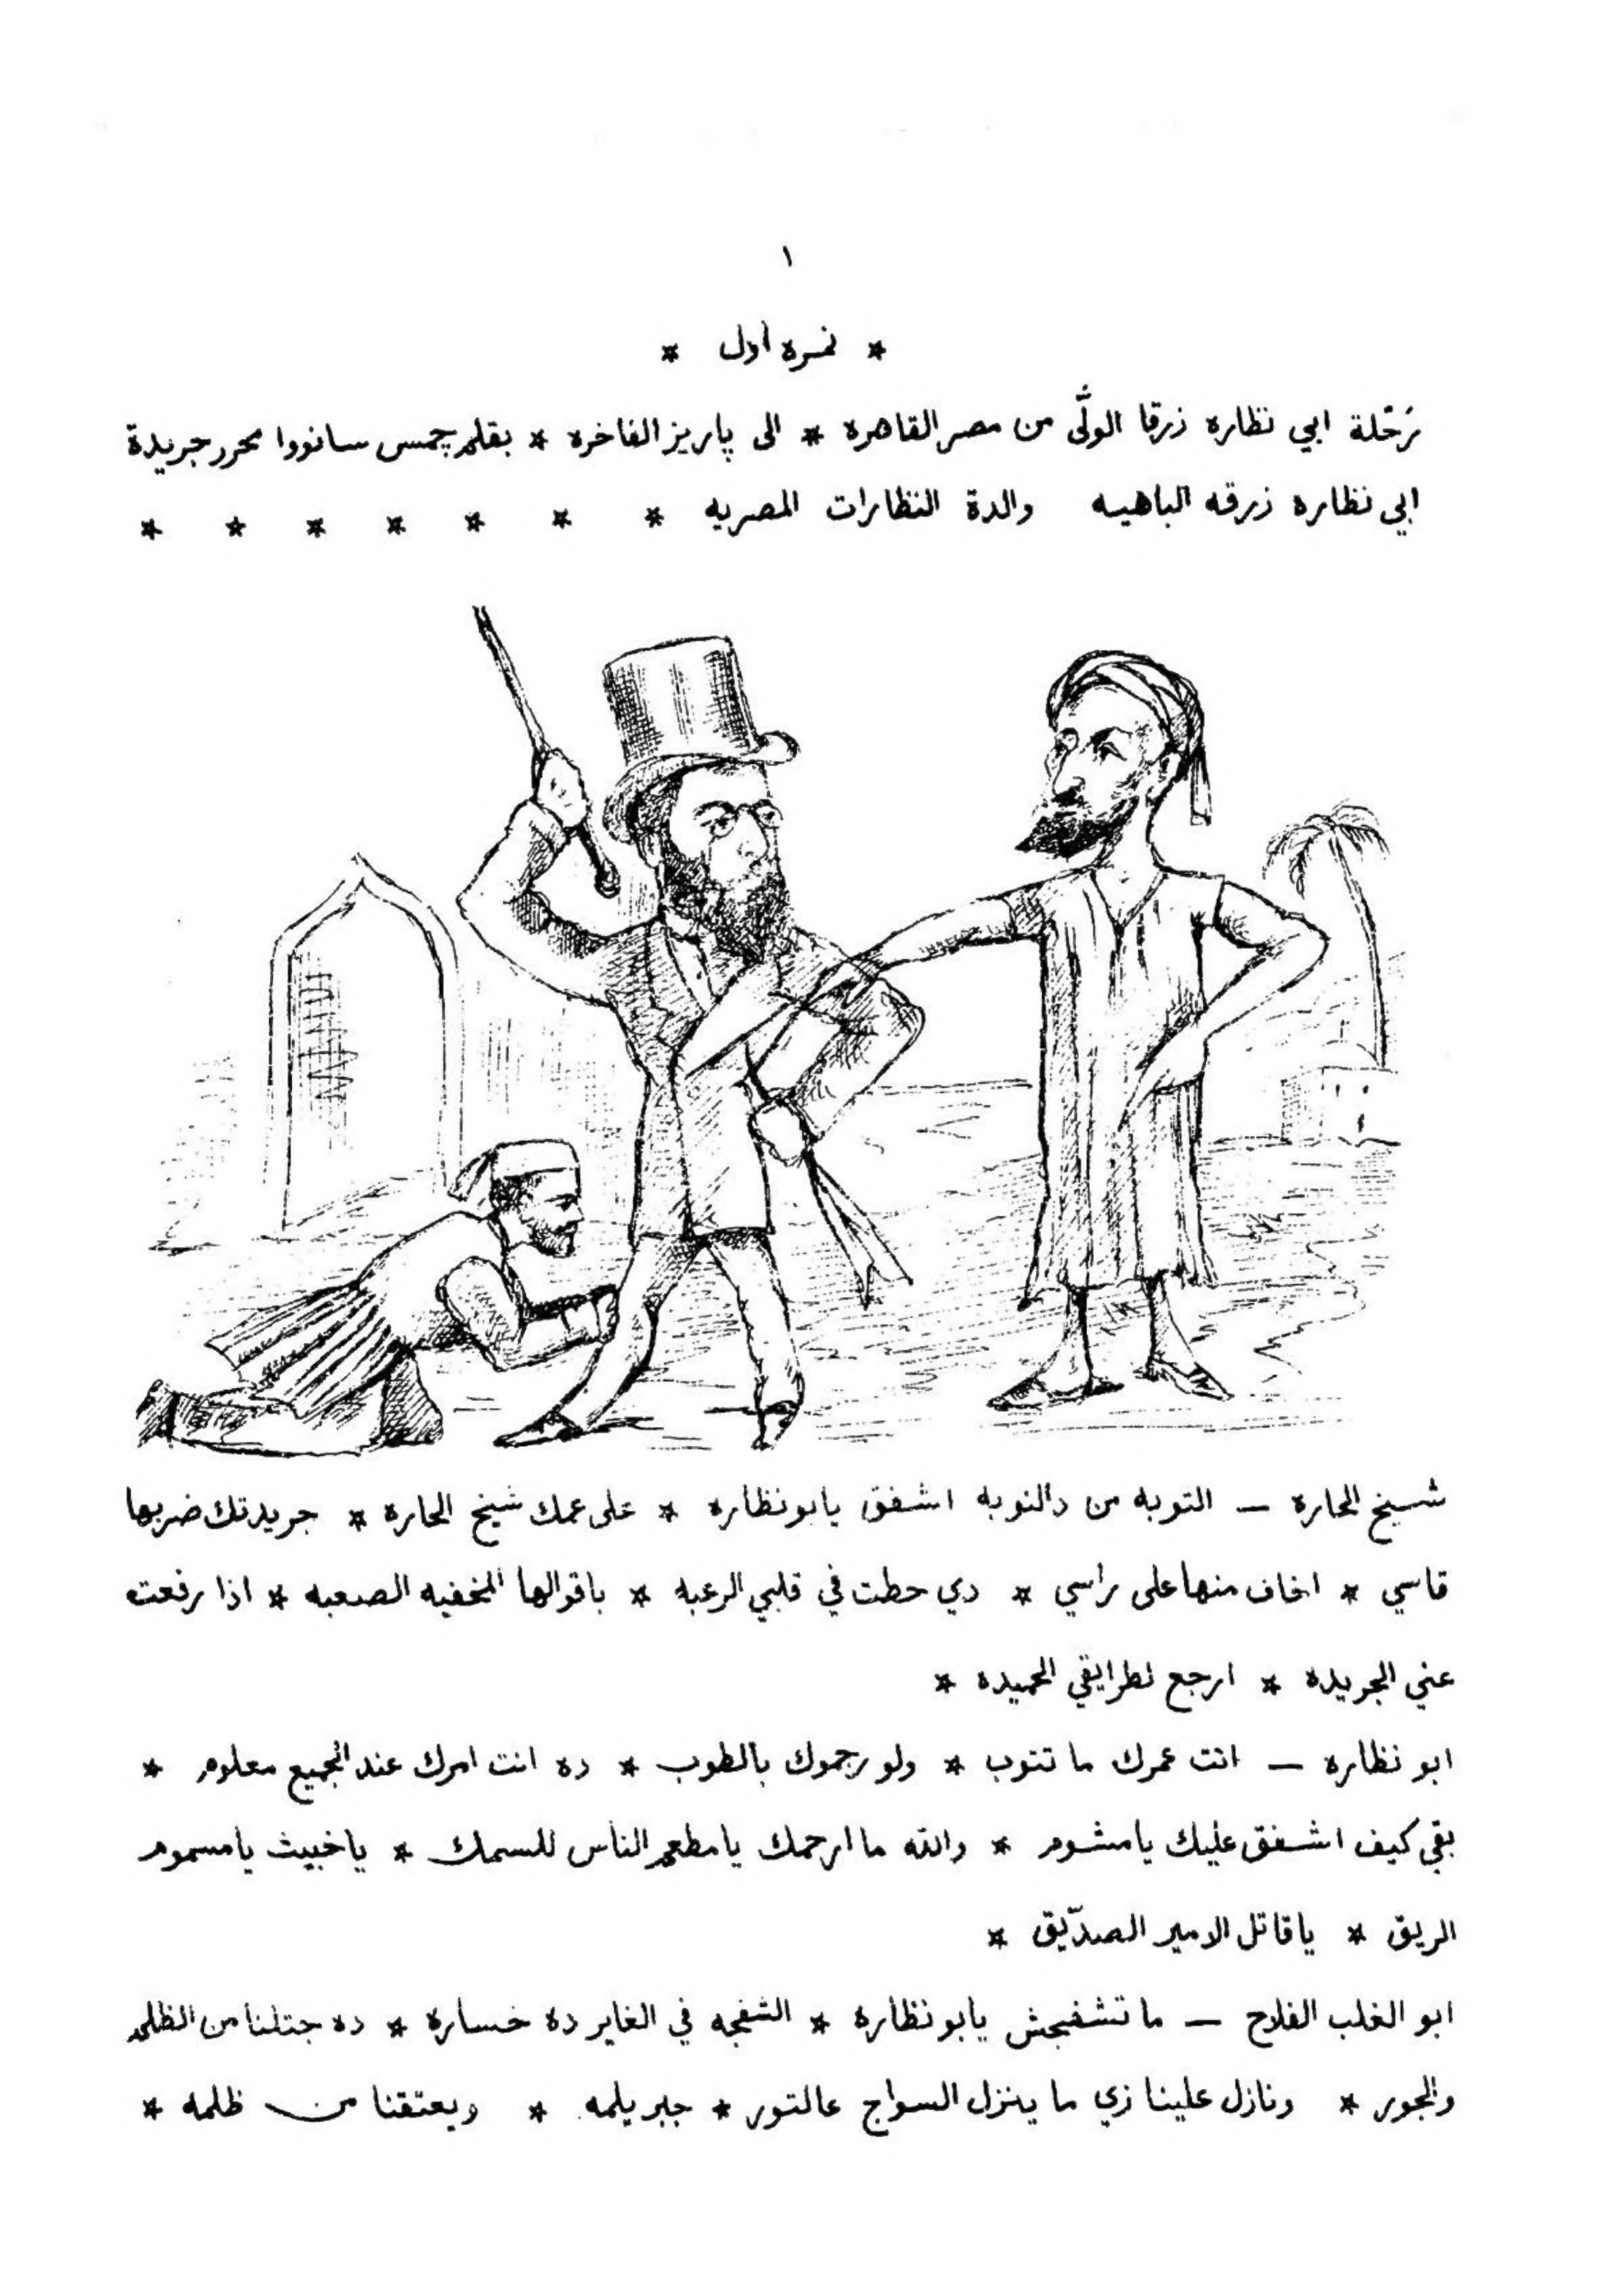 ١
* نمره اول *
رَحّلة ابي نظاره زرقا الولّى من مصر القاهرة * الى پاريز الفاخره * بقلم چمس سانووا محرر جريدة
ابي نظاره زرقه الباهيه والدة النظارات المصريه * * * * * * *
شيخ الحارة — التوبه من دالنوبه اشفق يابونظاره * على عمك شيخ الحاره * جريدتك ضربها
قاسي * اخاف منها على راسي * دي حطت في قلبي الرعبه * باقوالها المخفيه الصعبه * اذا رفعت
عني الجريده * ارجع لطرايقي الحميده *
ابو نظاره — انت عمرك ما تتوب * ولو رجموك بالطوب * ده انت امرك عند الجميع معلوم *
بقي كيف اشفق عليك يامشوم * والله ما ارحمك يا مطعم الناس للسمك * ياخبيث يا مسموم
الريق * يا قاتل الامير الصدّيق *
ابو الغلب الفلاح — ما تشفجش يابو نظاره * الشفجه في الغاير ده خسارة * ده جتلنا من الظلم
والجور * ونازل علينا زي ما ينزل السواج عالتور * جبر يلمه * ويعتقنا من ظلمه *